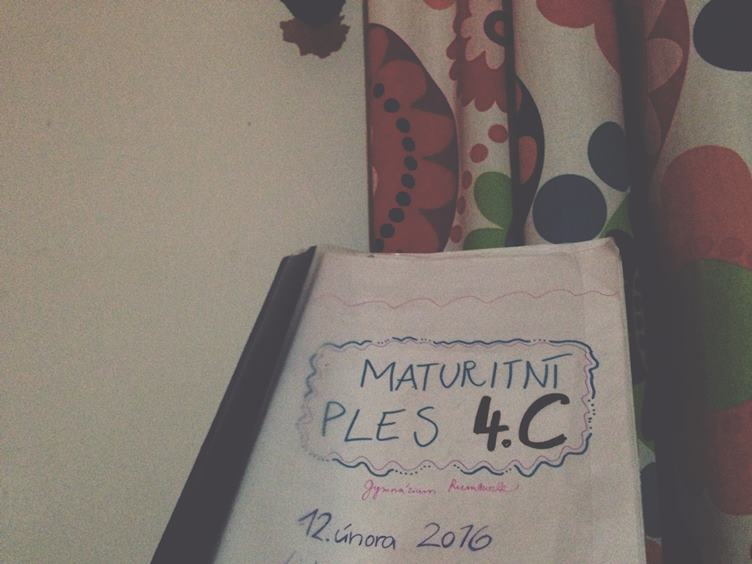 MATURITNÍ
PLES 4.C
Gymnázium
12. února 2016